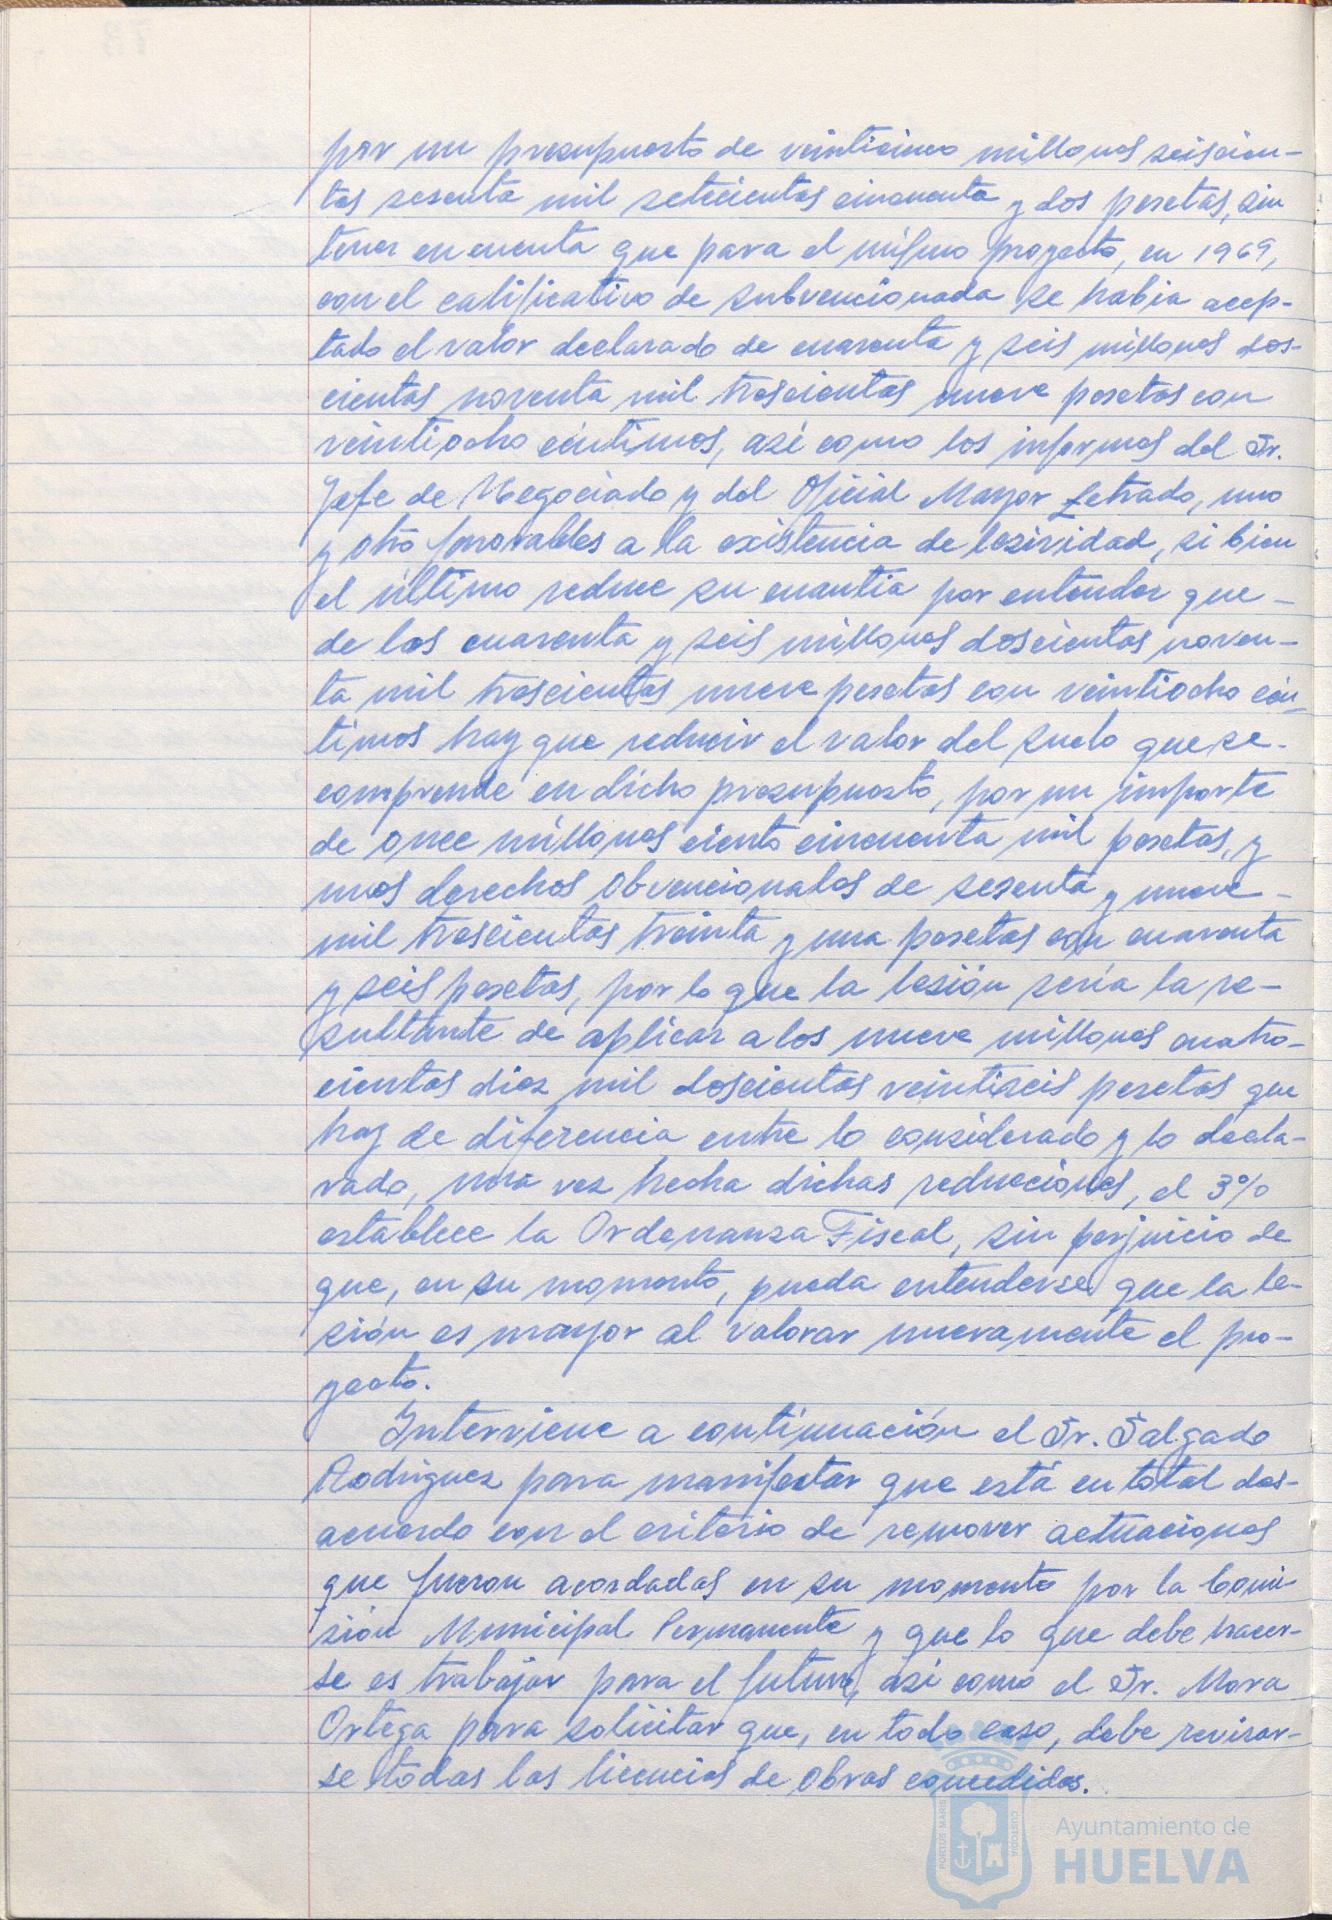 por un presupuesto de veinticinco millones seiscien-
tas sesenta mil setecientas cincuenta y dos pesetas, sin
tener en cuenta que para el mismo proyecto, en 1969,
con el calificativo de subvencionada se habia acep-
tado el valor declarado de cuarenta y seis millones dos-
cientas noventa mil trescientas nueve pesetas con
veintiocho céntimos, asi como los informes del Sr.
Jefe de Negociado y del Oficial Mayor Letrado, uno
y otro favorables a la existencia de lesividad, si bien
el último reduce su cuantia por entender que -
de las cuarenta y seis millones doscientas noven-
ta mil trescientas nueve pesetas con veintiocho cén-
timos hay que reducir el valor del suelo que se -
comprende en dicho presupuesto, por un importe
de once millones ciento cincuenta mil pesetas, y
unos derechos obvencionales de sesenta y nueve -
mil trescientas treinta y una pesetas con cuarenta
y seis pesetas, por lo que la lesión sería la re-
sultante de aplicar a los nueve millones cuatro-
cientas diez mil doscientas veintiseis pesetas que
hay de diferencia entre lo considerado y lo decla-
rado, una vez hecha dichas reducciones, el 3%
establece la Ordenanza Fiscal, sin perjuicio de
que, en su momento, pueda entenderse que la le-
sión es mayor al valorar nuevamente el pro-
yecto.
Interviene a continuación el Sr. Salgado
Rodriguez para manifestar que está en total des-
acuerdo con el criterio de remover actuaciones
que fueron acordadas en su momento por la Comi-
sión Municipal Permanente y que lo que debe hacer-
se es trabajar para el futuro, asi como el Sr. Mora
Ortega para solicitar que, en todo caso, debe revisar-
se todas las licencias de obras concedidas.
PORTUS MARIS
CUSTODIA
Ayuntamiento de
HUELVA